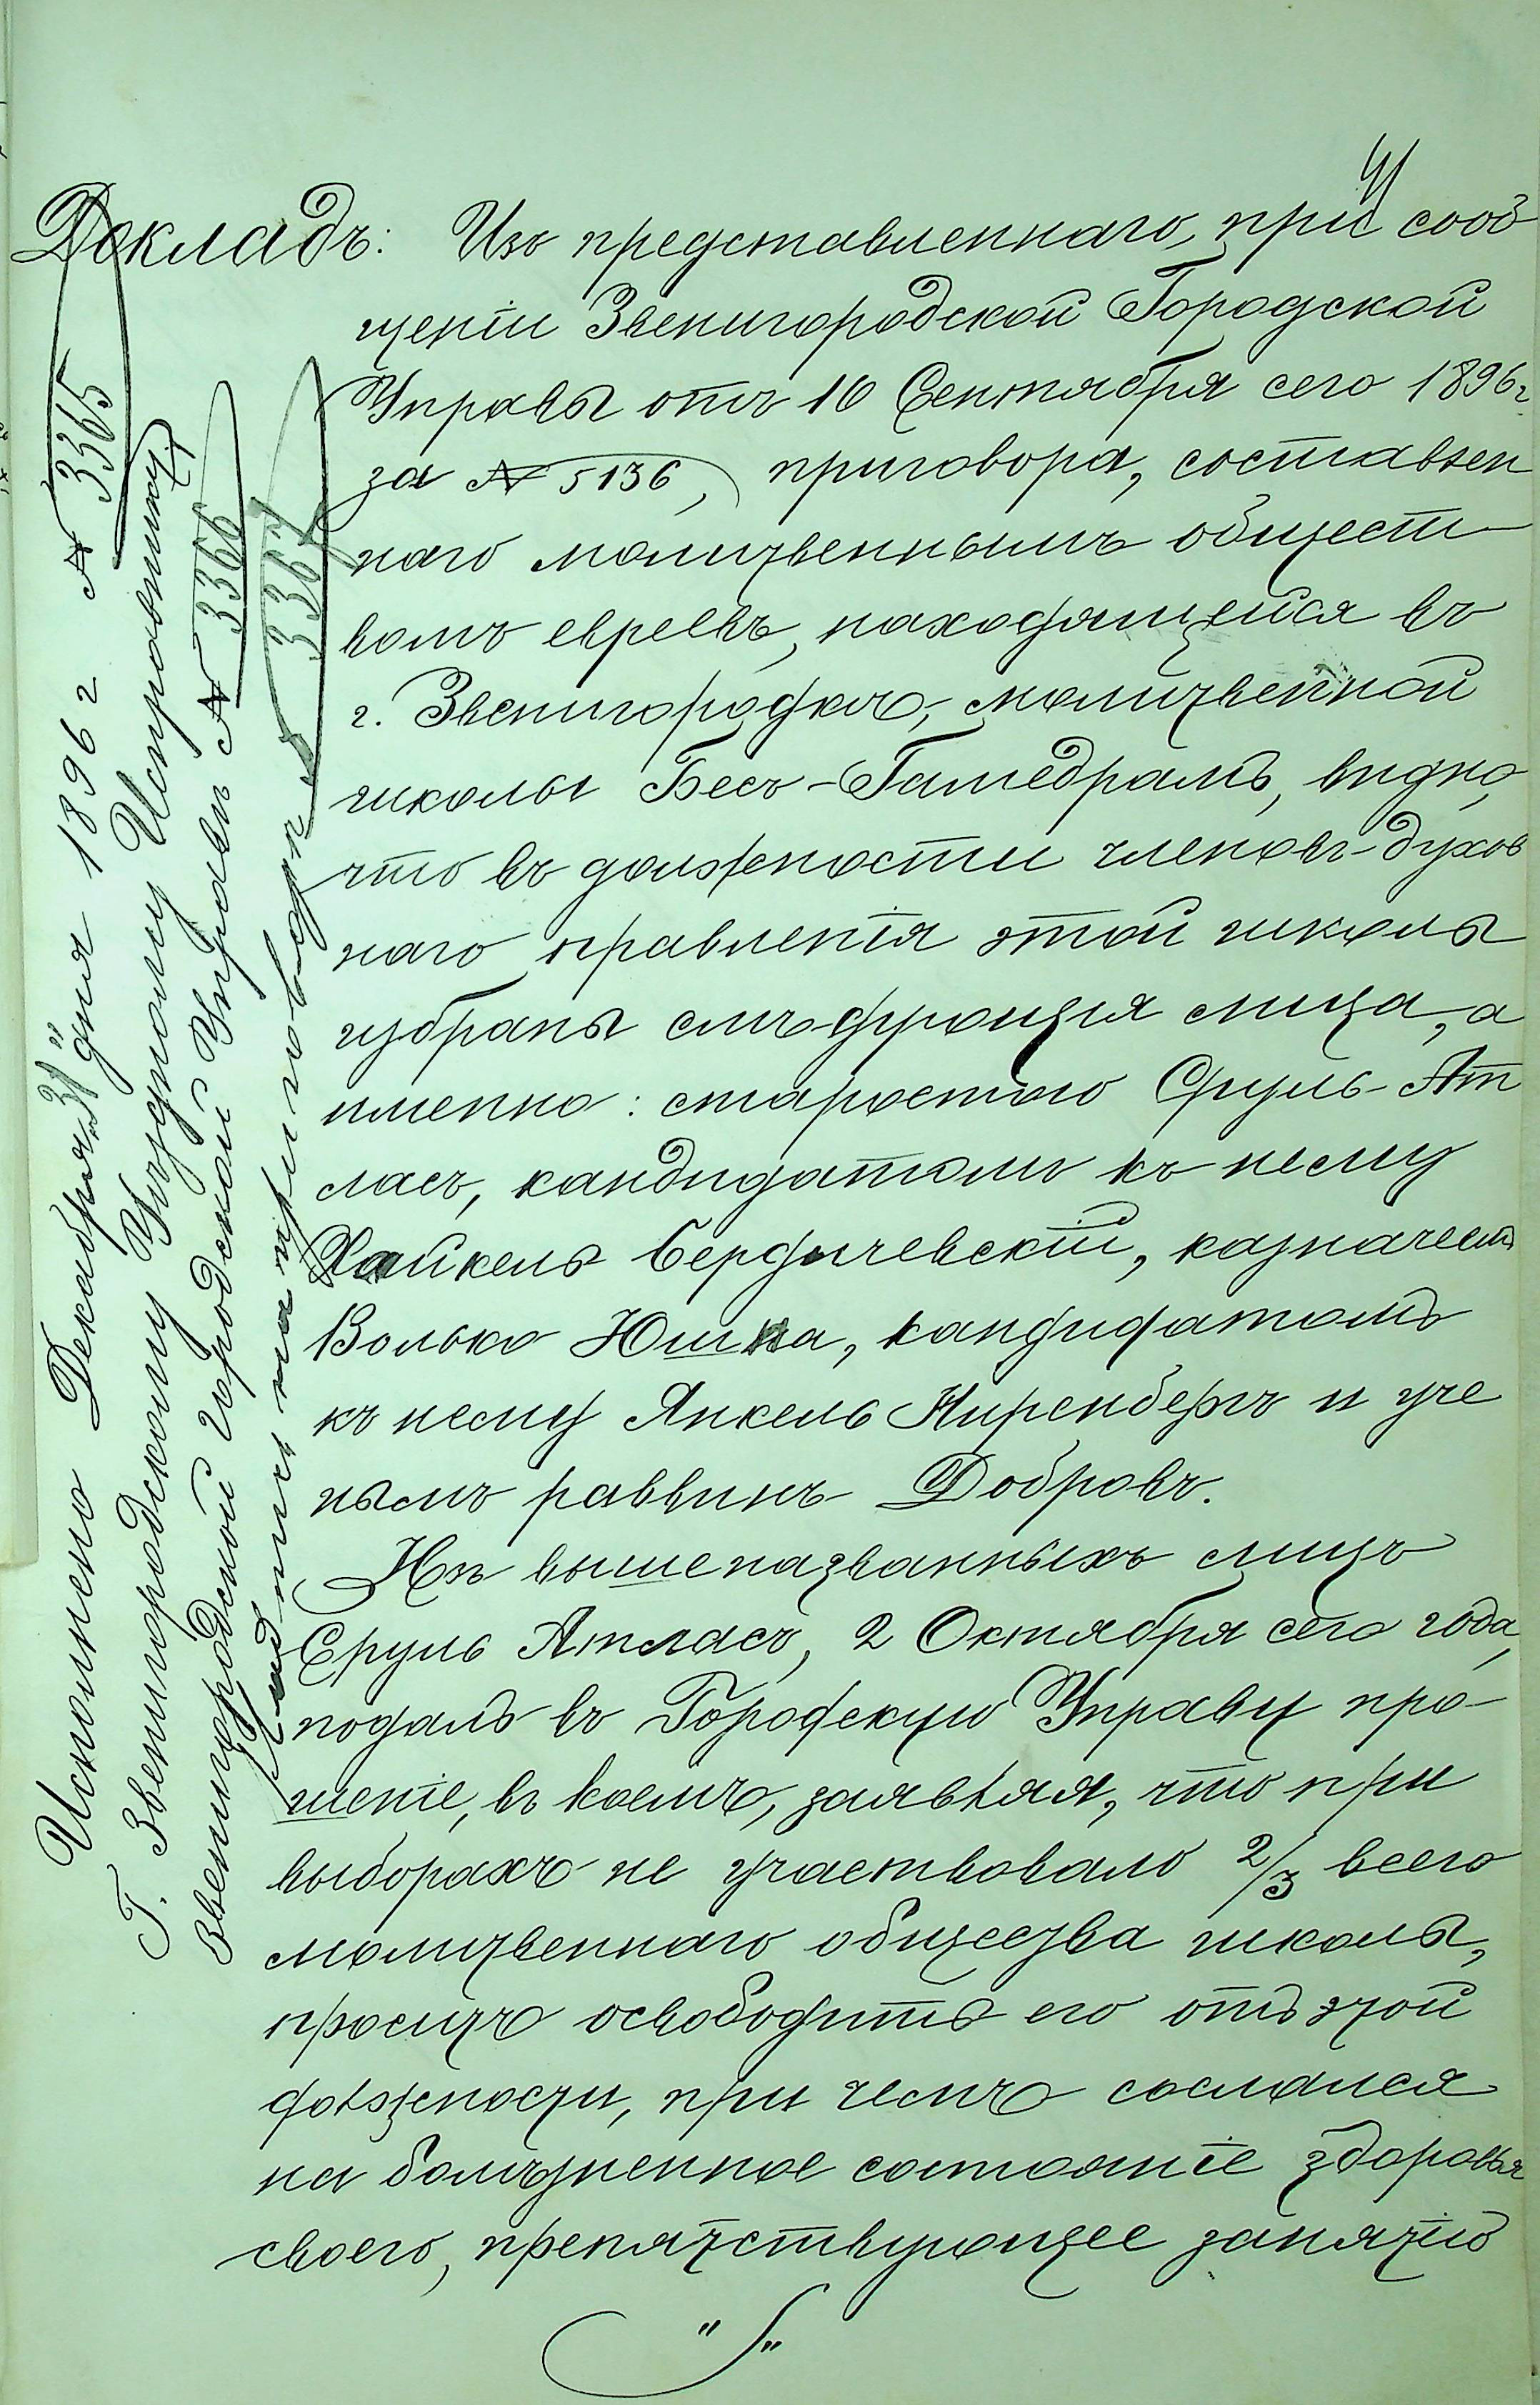 Докладъ: Изъ представленнаго, при сооб
щеніи Звенигородской Городской
Управы отъ 16 Сентября сего 1896 г.
за № 5136, приговора, составлен
наго молитвеннымъ общест
вомъ евреевъ, находящейся въ
г. Звенигородкѣ, молитвенной
школы Бесъ-Гамедрашъ, видно,
что въ должности членовъ духов
наго правленія этой школы
избраны слѣдующія лица, а
именно: старостою Сруль Ат
ласъ, кандидатомъ къ нему
Хайкель Бердичевскій, казначеемъ
Волько Юшка, кандидатомъ
къ нему Янкель Ниренбергъ и уче
нымъ раввинъ Добровъ.
Изъ вышеназванныхъ лицъ
Сруль Атласъ, 2 Октября сего года,
подалъ въ Городскую Управу про-
шеніе, въ коемъ, заявляя, что при
выборахъ не участвовало 2/3 всего
молитвеннаго общества школы,
проситъ освободить его отъ этой
должности, при чемъ сослался
на болѣзненное состояніе здоровья
своего, препятствующее занятію
Исполнено Декабря „31" дня 1896 г № 3365
Г. Звенигородскому Уѣздному Исправнику
Звенигородской городской Управѣ № 3366
Надпись на приговорѣ № 3367